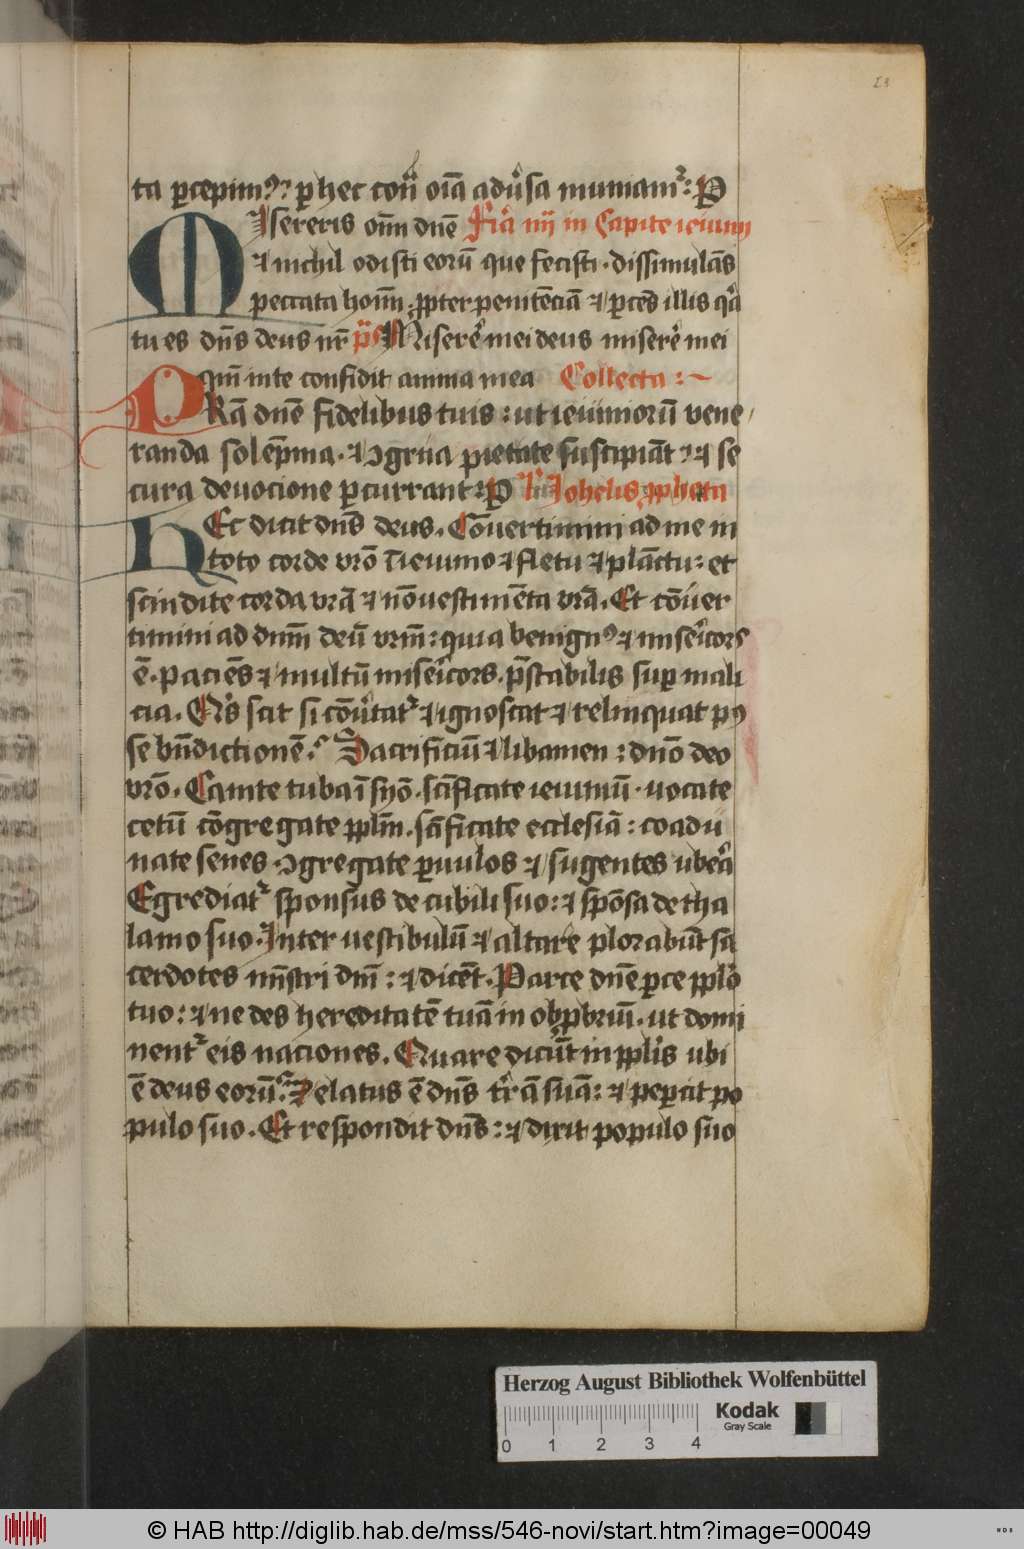 23
ta ꝑcepimꝰ: ꝑ hec cont̃ oīa adũsa muniamᷣ: P
MIsereris oīm dnē Fr̃ia iiij in Capite ieiunij
⁊ nichil odisti eorū que fecisti · dissimulās
peccata hoīm · ꝓpter penitēciā ⁊ ꝑcēs illis qr̃a
tu es dn̄s deus nr̄ ps̄ Miserẽ mei deus miserẽ mei
qm̄ in te confidit anima mea Collecta :~
PRa᷒ dnē fidelibus tuis : ut ieiuniorū vene
randa solēpnia · ⁊ ↄgrua pietate suscipiāt : ⁊ se
cura deuocione ꝑcurrant : P Iohelis ꝓpheta
HEc dicit dn̄s deus . Cōuertimini ad me in
toto corde vrō ī ieiunio ⁊ fletu ⁊ plāctu : et
scindite corda vrā ⁊ nō uestimēta vrā . Et cōuer
timini ad dnm̄ deū vrm̄ : quia benignꝰ ⁊ misẽicors
ē . paciēs ⁊ multū misẽicors . p̄stabilis suꝑ mali
cia . Qͥs scit si cōũtatᷣ ⁊ ignoscat ⁊ relinquat pꝰ
se bn̄dictionē . Sacrificiū ⁊ libamen : dnō deo
vrō . Canite tuba ī syō . sc̄ificate ieiuniū . uocate
cetū cōgregate ꝓplm̄ . sc̄ificate ecclesiā : coadu
nate senes . ↄgregate ꝑuulos ⁊ sugentes ubeᷓa
Egrediatᷣ sponsus de cubili suo : ⁊ spōsa de tha
lamo suo . Inter uestibulū ⁊ altare plorabūt sa
cerdotes mīstri dnī : ⁊ dicēt . Parce dnē ꝑce pplō
tuo : ⁊ ne des hereditatē tuā in obpbriū . ut domi
nentᷣ eis naciones . Quare dicūt in ppl̓is ubi
ē deus eorū . Zelatus ē dn̄s tr̃ā suā : ⁊ peꝑcit po
pulo suo . Et respondit dn̄s : ⁊ dixit populo suo
Herzog August Bibliothek Wolfenbüttel
Kodak
Gray Scale
0 1 2 3 4
© HAB http://diglib.hab.de/mss/546-novi/start.htm?image=00049
HAB